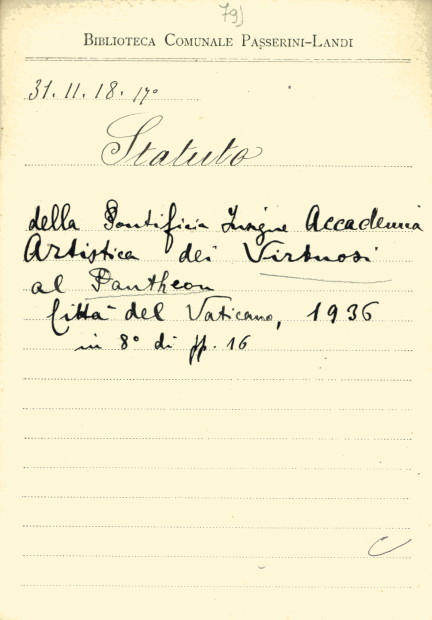 79)
BIBLIOTECA COMUNALE PASSERINI-LANDI
31.11.18.17º
Statuto
della Pontificia Insigne Accademia
Artistica dei Virtuosi
al Pantheon
Città del Vaticano, 1936
in 8º di pp. 16
C